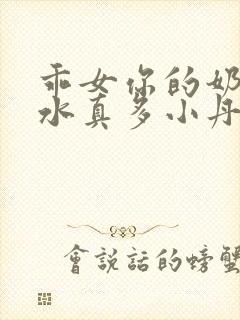 乖女你的奶
水真多小丹
會說話的螃蟹